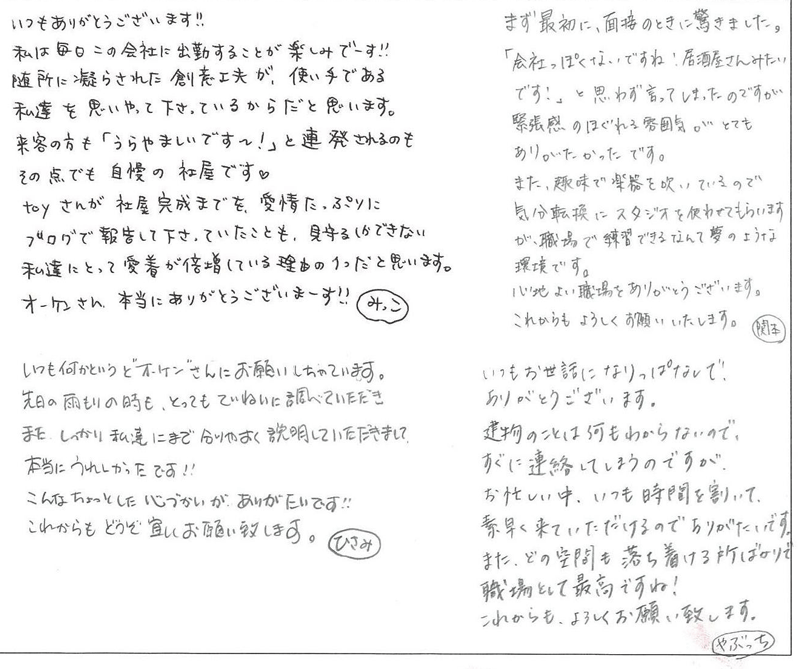 いつもありがとうございます!!
私は毎日この会社に出勤することが楽しみでーす!!
随所に凝らされた創意工夫が、使い手である
私達を思いやって下さっているからだと思います。
来客の方も「うらやましいです〜!」と連発されるのも
その点でも自慢の社屋です♡
toyさんが社屋完成までを、愛情たっぷりに
ブログで報告して下さっていたことも、見守るしかできない
私達にとって愛着が倍増している理由の1つだと思います。
オーケンさん、本当にありがとうございまーす!!
みっこ
まず最初に、面接のときに驚きました。
「会社っぽくないですね!居酒屋さんみたい
です!」と思わず言ってしまったのですが
緊張感のほぐれる雰囲気がとても
ありがたかったです。
また、趣味で楽器を吹いているので
気分転換にスタジオを使わせてもらいます
が、職場で練習できるなんて夢のような
環境です。
心地よい職場をありがとうございます。
これからもよろしくお願いいたします。
関本
いつも何かというとオーケンさんにお願いしちゃています。
先日の雨もりの時も、とってもていねいに調べていただき
また しっかり私達にまで分りやすく説明していただきまして
本当にうれしかったです!!
こんなちょっとした心づかいが、ありがたいです!!
これからも どうぞ宜しくお願い致します。
ひさみ
いつもお世話になりっぱなしで、
ありがとうございます。
建物のことは何もわからないので、
すぐに連絡してしまうのですが、
お忙しい中、いつも時間を割いて、
素早く来ていただけるのでありがたいです。
また、どの空間も落ち着ける所ばかりで
職場として最高ですね!
これからも、よろしくお願い致します。
やぶっち